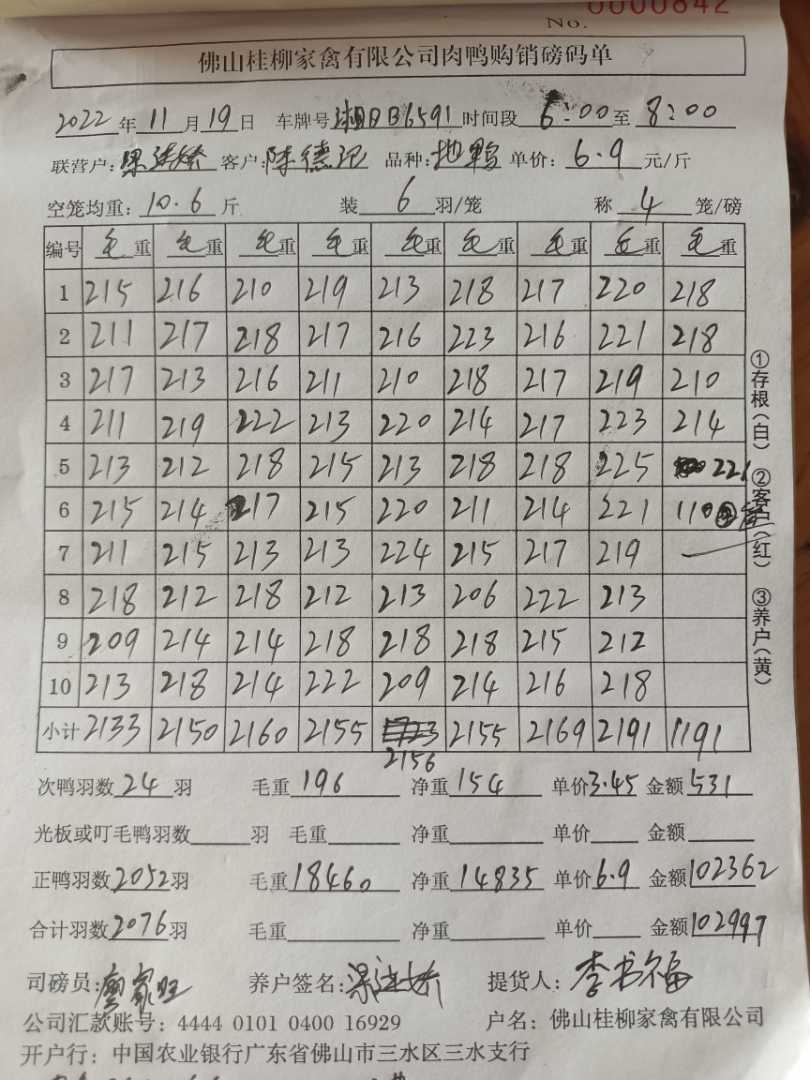 No. 0000842
佛山桂柳家禽有限公司肉鸭购销磅码单
2022年11月19日 车牌号湘DB6591时间段6:00至8:00
联营户: 客户:陈德记 品种:地鸭 单价:6.9元/斤
空笼均重:10.6斤 装6羽/笼 称4笼/磅
编号 毛重 毛重 毛重 毛重 毛重 毛重 毛重 毛重 毛重
1 215 216 210 219 213 218 217 220 218
2 211 217 218 217 216 223 216 221 218
3 217 213 216 211 210 218 217 219 210
4 211 219 222 213 220 214 217 223 214
5 213 212 218 215 213 218 218 225 221
6 215 214 217 215 220 211 214 221 110
7 211 215 213 213 224 215 217 219 —
8 218 212 218 212 213 206 222 213
9 209 214 214 218 218 218 215 212
10 213 218 214 222 209 214 216 218
小计 2133 2150 2160 2155 2156 2155 2169 2191 1191
次鸭羽数24羽 毛重196 净重154 单价3.45 金额531
光板或叮毛鸭羽数 羽 毛重 净重 单价 金额
正鸭羽数2052羽 毛重18460 净重14835 单价6.9 金额102362
合计羽数2076羽 毛重 净重 单价 金额102997
司磅员:廖家旺 养户签名: 提货人:李书福
公司汇款账号:4444 0101 0400 16929 户名:佛山桂柳家禽有限公司
开户行:中国农业银行广东省佛山市三水区三水支行
①存根(白) ②客户(红) ③养户(黄)